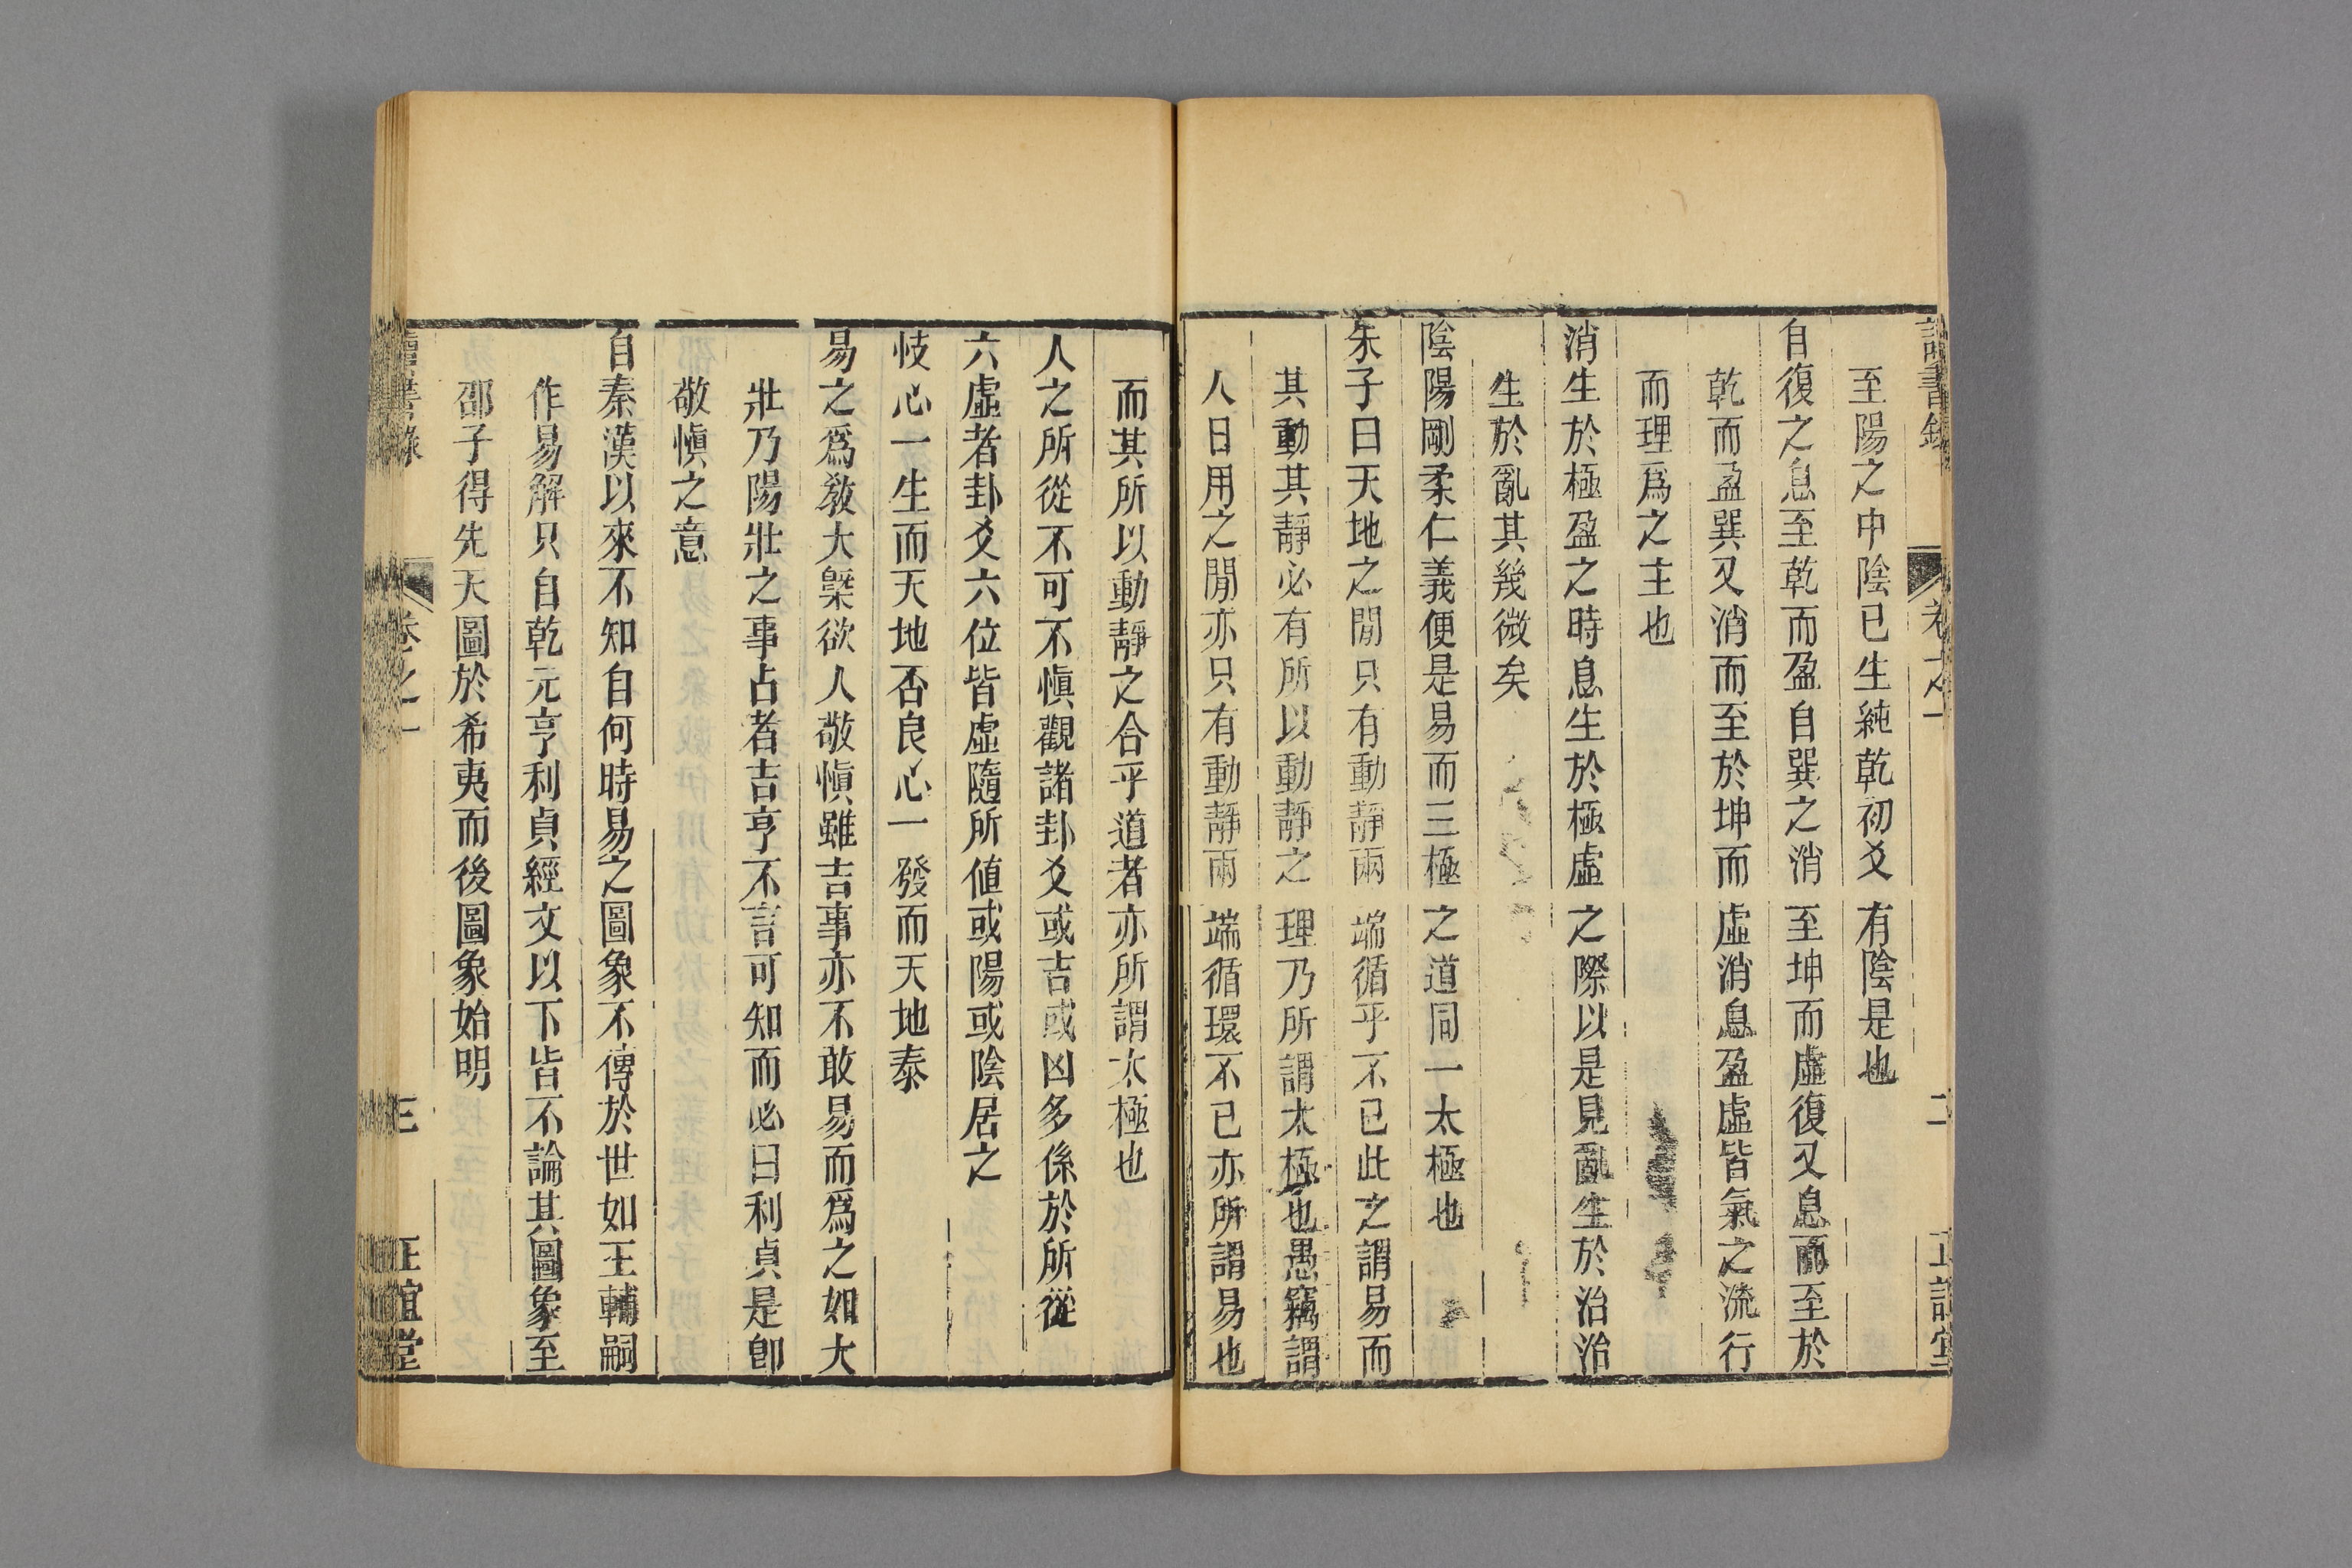 讀書錄 卷之一 二 正誼堂
至陽之中陰已生純乾初爻有陰是也
自復之息至乾而盈自巽之消至坤而虛復又息而至於
乾而盈巽又消而至於坤而虛消息盈虛皆氣之流行
而理爲之主也
消生於極盈之時息生於極虛之際以是見亂生於治治
生於亂其幾微矣
陰陽剛柔仁義便是易而三極之道同一太極也
朱子曰天地之閒只有動靜兩端循乎不已此之謂易而
其動其靜必有所以動靜之理乃所謂太極也愚竊謂
人日用之閒亦只有動靜兩端循環不已亦所謂易也
而其所以動靜之合乎道者亦所謂太極也
人之所從不可不愼觀諸卦爻或吉或凶多係於所從
六虛者卦爻六位皆虛隨所値或陽或陰居之
忮心一生而天地否良心一發而天地泰
易之爲敎大槩欲人敬愼雖吉事亦不敢易而爲之如大
壯乃陽壯之事占者吉亨不言可知而必曰利貞是卽
敬愼之意
自秦漢以來不知自何時易之圖象不傳於世如王輔嗣
作易解只自乾元亨利貞經文以下皆不論其圖象至
邵子得先天圖於希夷而後圖象始明
讀書錄 卷之一 三 正誼堂